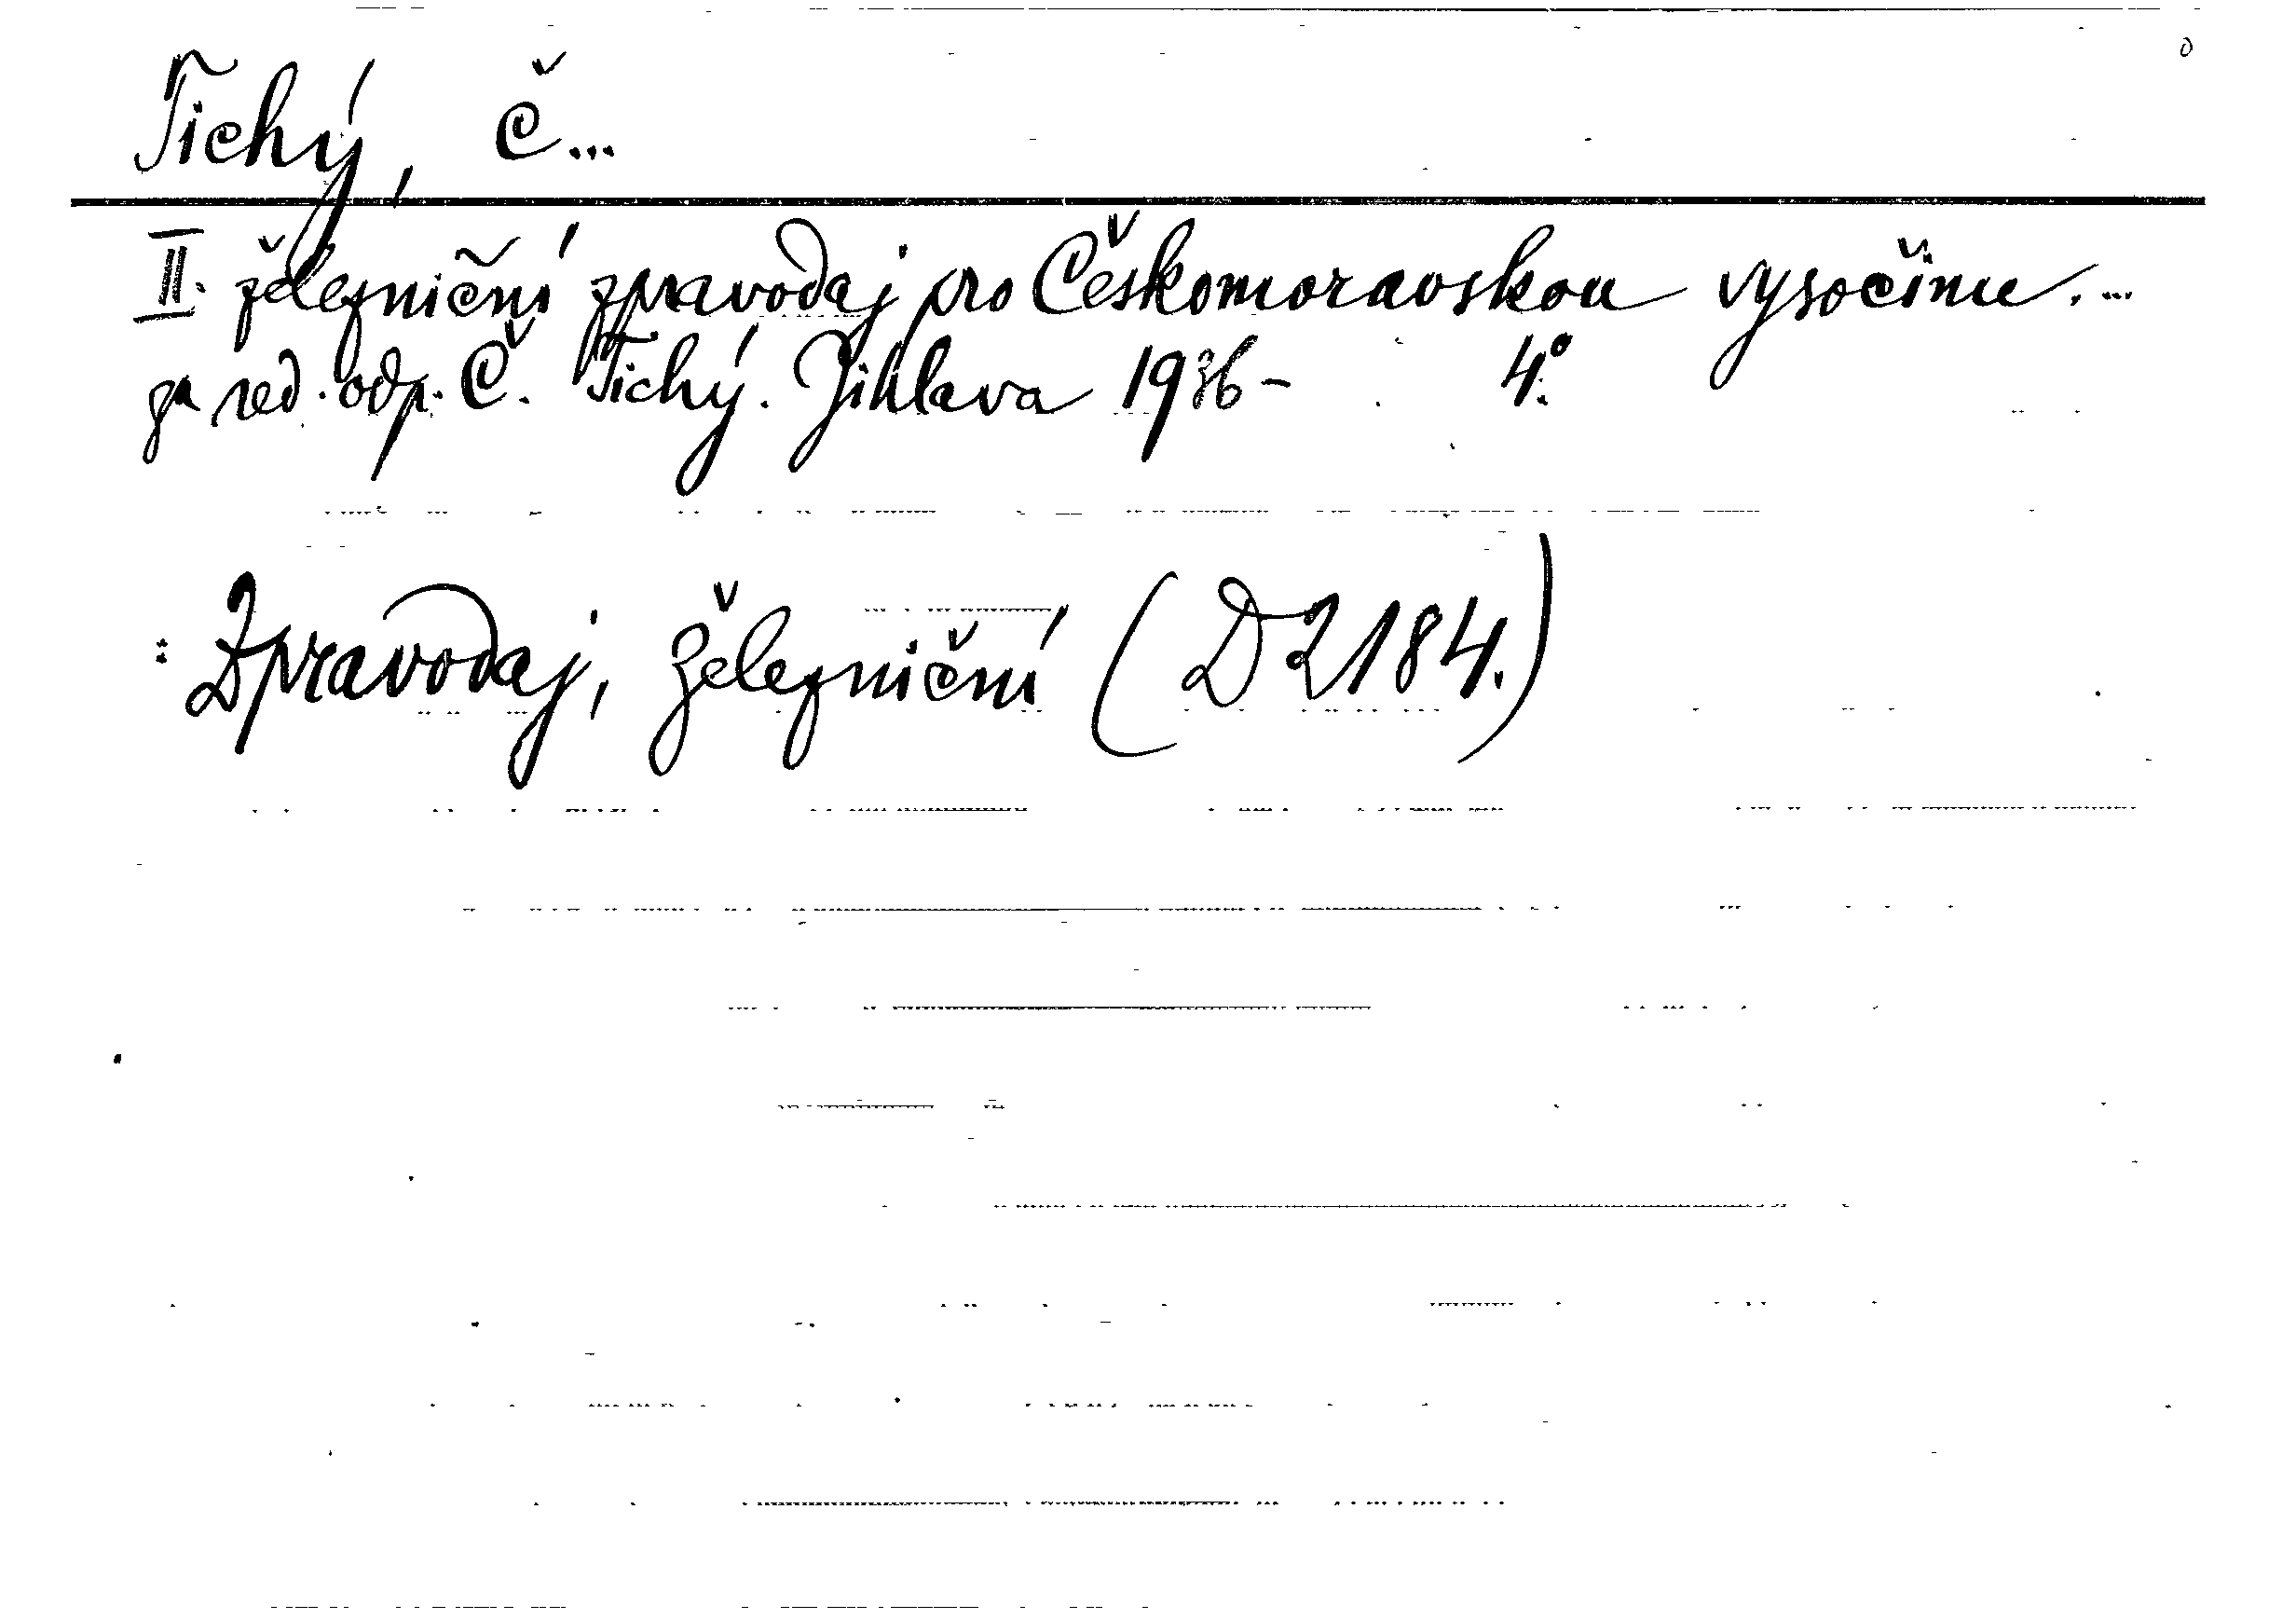 Tichý, Č...
II. železniční zpravodaj pro Českomoravskou vysočinu. ...
za red. odp. Č. Tichý. Jihlava 1936- 4°.
: Zpravodaj, železniční (D 2184.)